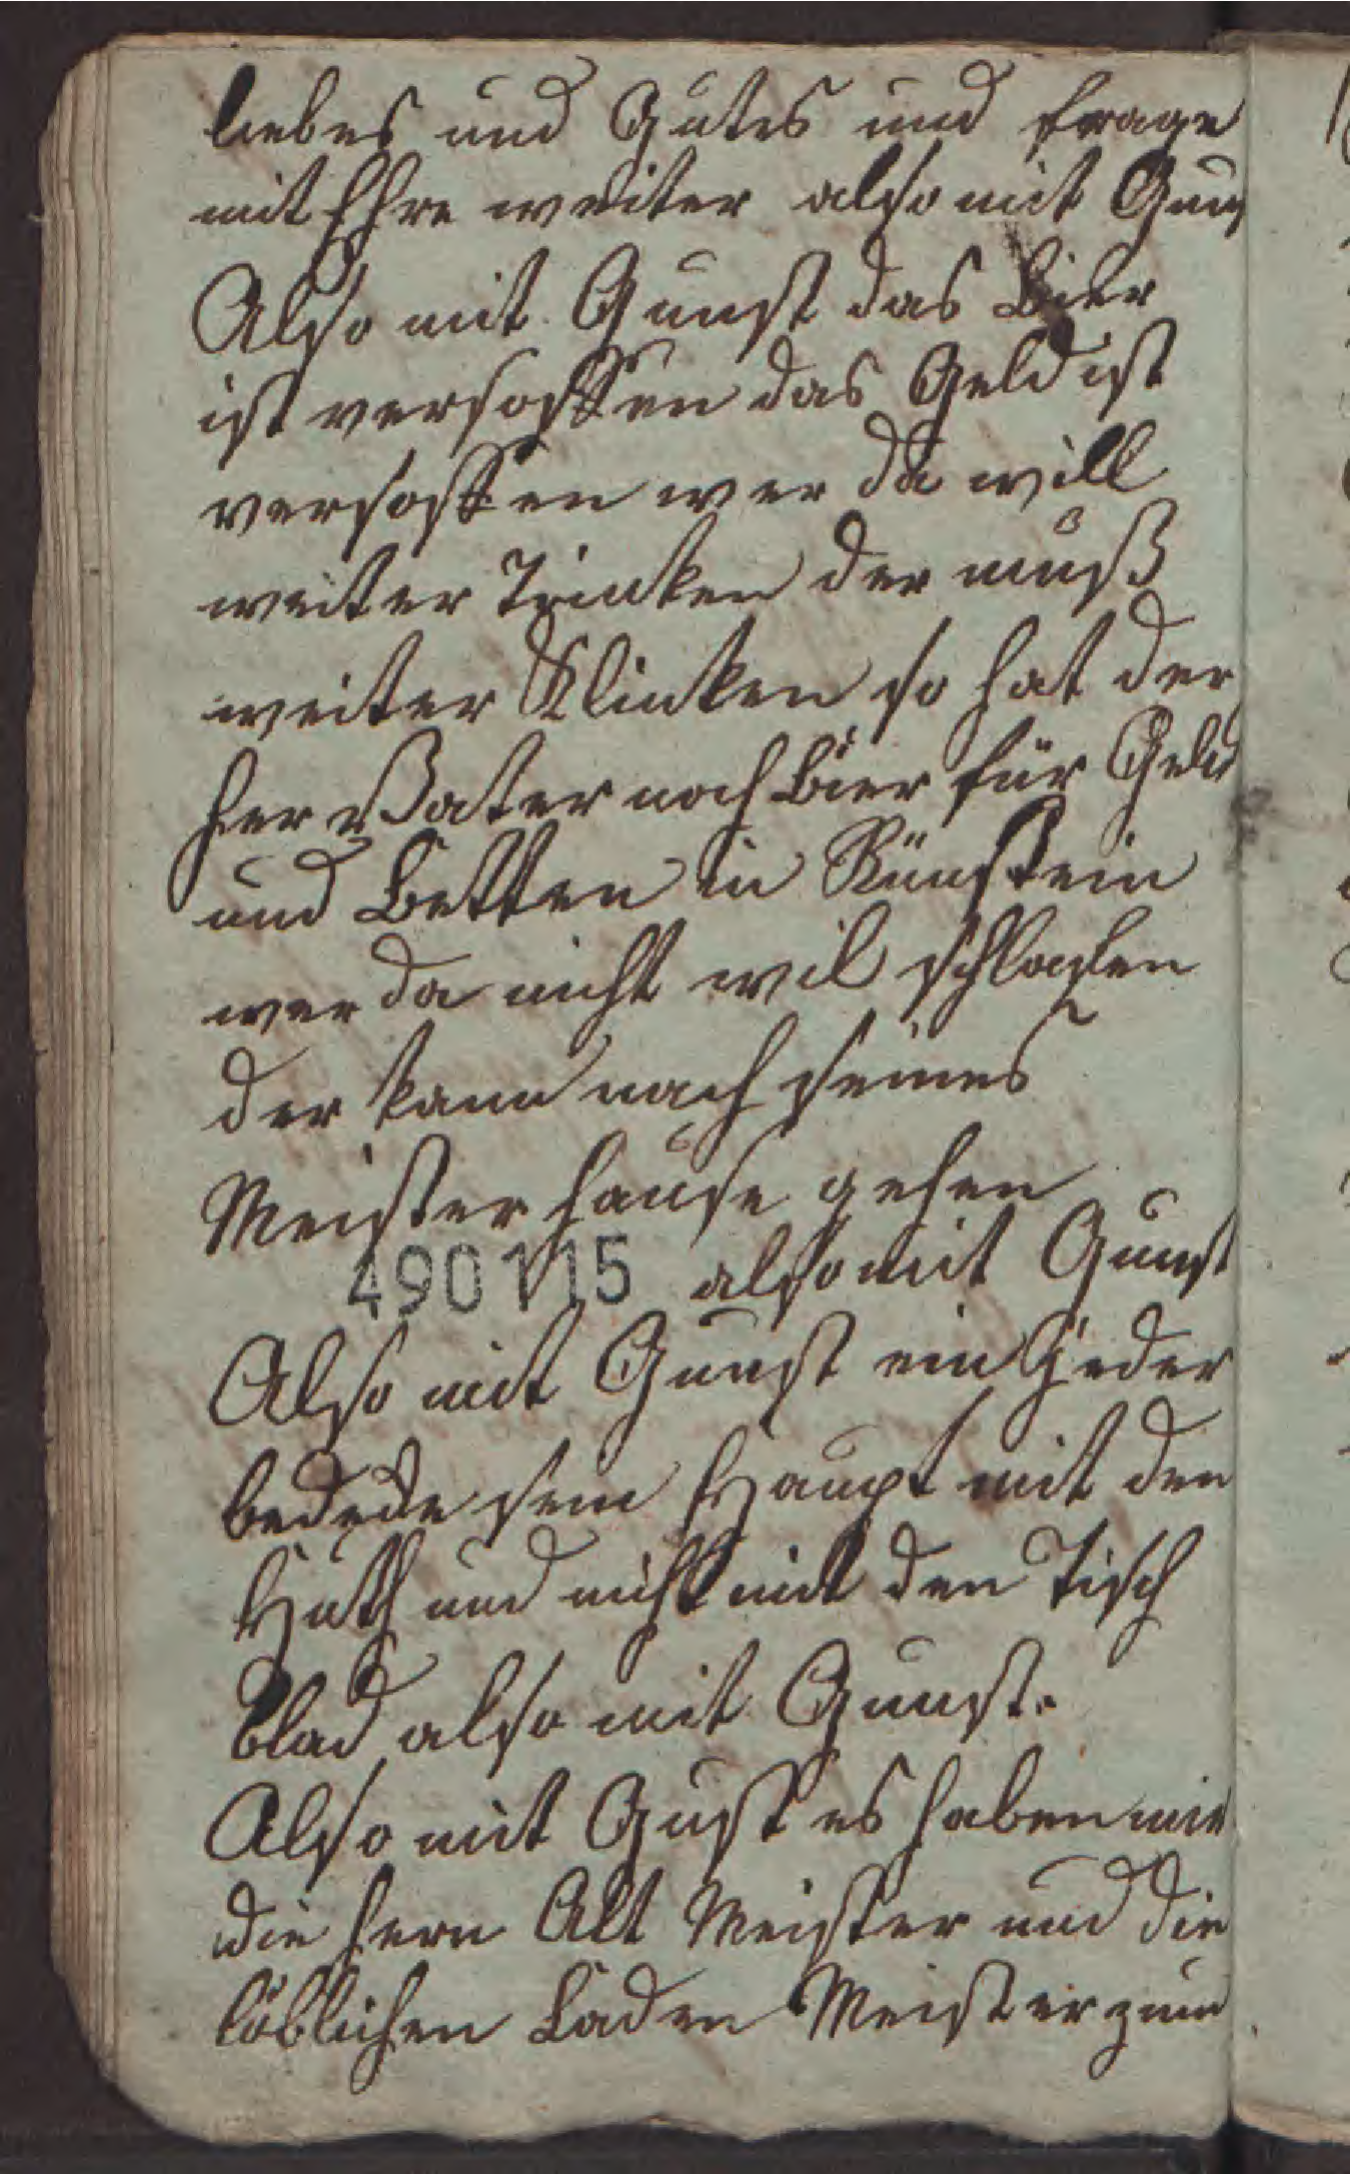 liebes und Gutes und frage
mit Ehre weiter also mit Guns
Also mit Gunst das Bier
ist versoffen das Geld ist
versoffen wer da will
weiter Trinken der muß
weiter Klinken so hat der
her Vater noch Bier für Geld
und Betten in Rünstein
wer da nicht wil schlafen
der kann nach seines
Meister hause gehen
490115 also mit Gunst
Also mit Gunst ein Jeder
bedecke sein Haupt mit den
Huth und nicht mit den Tisch
Blad also mit Gunst.
Also mit Gust es haben mir
die hern Alt Meister und die
löblichen Laden Meister zum